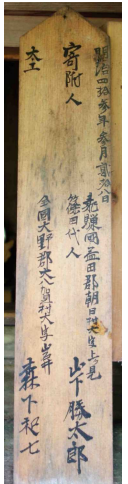 明治四拾参年参月貳拾八日
寄附人
飛騨國益田郡朝日村大字上ヶ見
篠田代人
山下勝太郎
大工
仝國大野郡大八賀村大字
森下和七